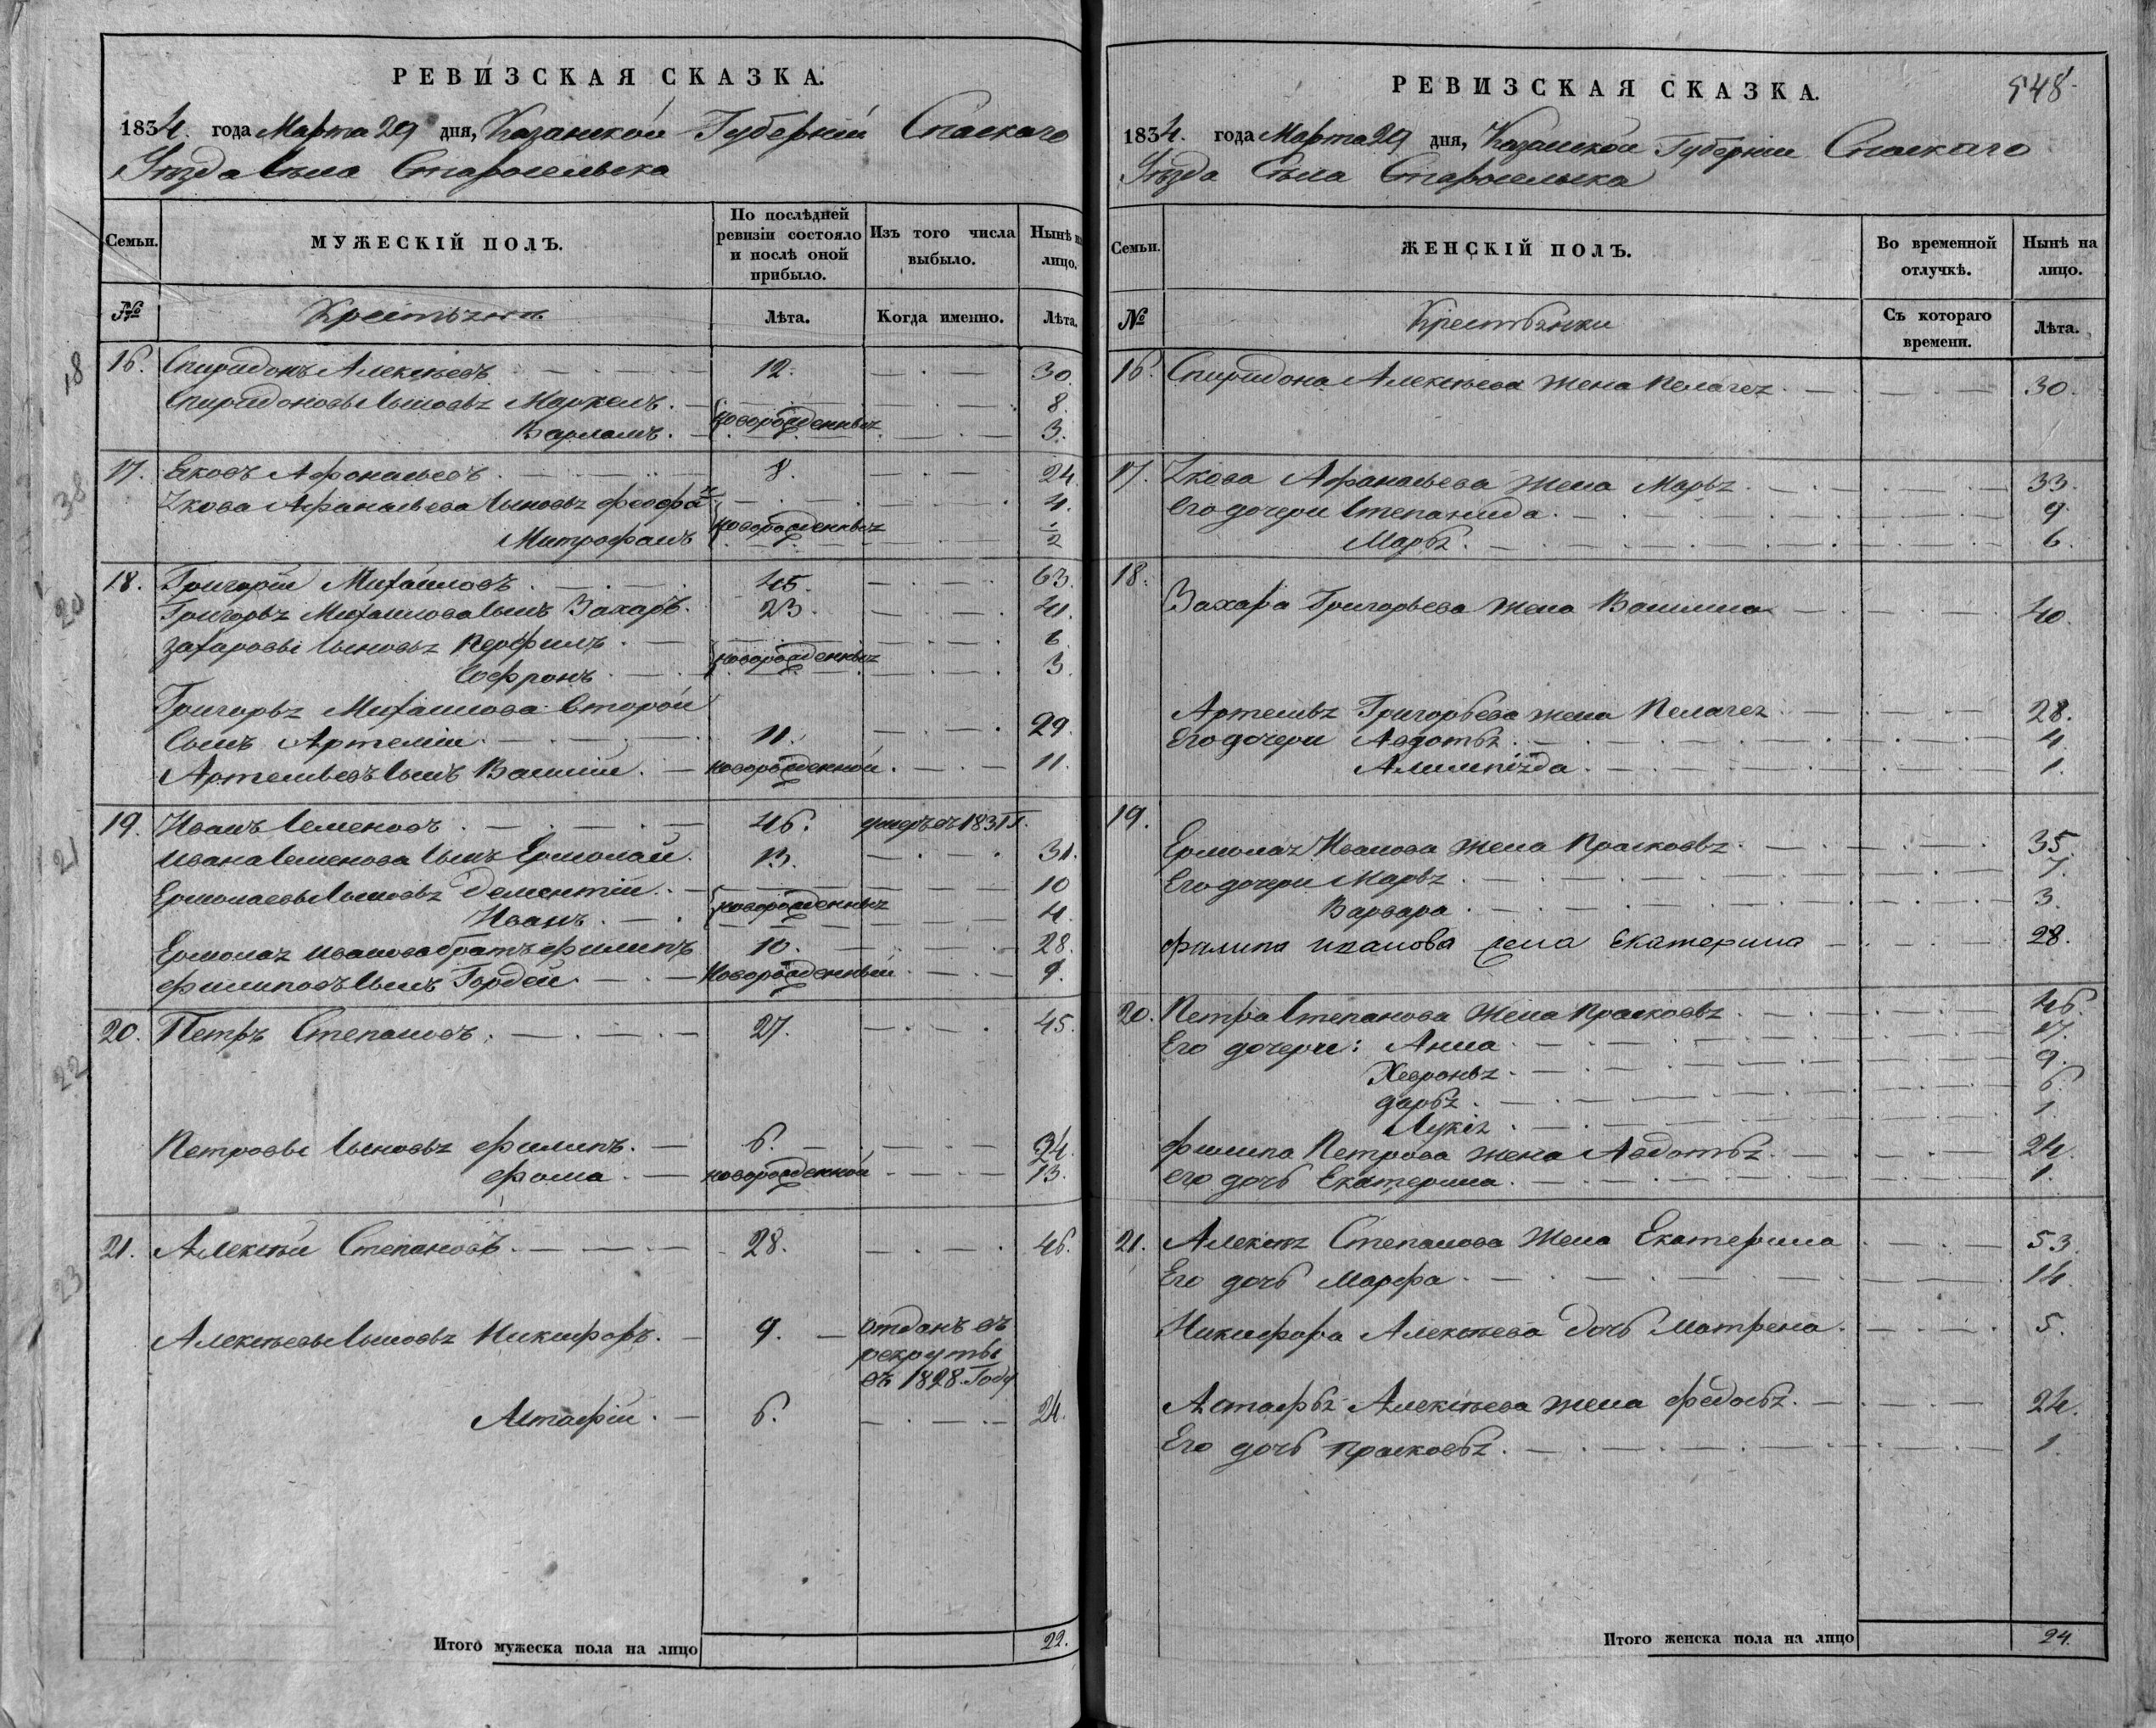 РЕВИЗСКАЯ СКАЗКА.
1834. года Марта 29 дня, Казанской Губерніи Спаскаго
Уезда Села Старосельска
Семьи.
МУЖЕСКІЙ ПОЛЪ.
По послѣдней ревизіи состояло и послѣ оной прибыло.
Изъ того числа выбыло.
Нынѣ на лицо.
№
Крестьяне
Лѣта.
Когда именно.
Лѣта.
18
16. Спиридонъ Алексѣевъ. 12. 30.
Спиридоновы Сыновья Маркелъ. новорожденныя 8.
Варламъ. 3.
38
17. Ековъ Афонасьевъ. 8. 24.
Якова Афанасьева Сыновья Феофа новорожденныя 4.
Митрофанъ 1/2
20
18. Григорій Михайловъ. 45. 63.
Григорья Михайлова Сынъ Захаръ. 23. 41.
Захаровы Сыновья Перфилъ. новорожденныя 6
Софронъ 3.
Григорья Михайлова Второй
Сынъ Артемій. 11. 29.
Артемьевъ Сынъ Василій. новорожденной. 11.
21
19. Иванъ Семеновъ. 46. умеръ въ 1831 г.
Ивана Семенова Сынъ Ермолай. 13. 31.
Ермолаевы Сыновья Дементій. новорожденныя 10
Иванъ. 4.
Ермолая Иванова братъ Филипъ 10. 28.
Филиповъ Сынъ Гордей. Новорожденный. 9.
22
20. Петръ Степановъ. 27. 45.
Петровы Сыновья Филипъ. 6. 24.
Фома. новорожденной 13.
23
21. Алексѣй Степановъ. 28. 46.
Алексѣевы Сыновья Никифоръ. 9. отданъ въ
рекруты
въ 1828. Году
Астафій. 6. 24.
Итого мужеска пола на лицо 22.
РЕВИЗСКАЯ СКАЗКА.
548.
1834. года Марта 29 дня, Казанской Губерніи Спаскаго
Уезда Села Старосельска
Семьи.
ЖЕНСКІЙ ПОЛЪ.
Во временной отлучкѣ.
Нынѣ на лицо.
№
Крестьянки
Съ котораго времени.
Лѣта.
16. Спиридона Алексѣева жена Пелагея. 30.
17. Якова Афанасьева жена Марья. 33.
Его дочери Степанида. 9.
Марья. 6.
18. Захара Григорьева жена Василиса 40.
Артемья Григорьева жена Пелагея 28.
Его дочери Авдотья. 4.
Алимпіада. 1.
19. Ермолая Иванова жена Прасковья. 35.
Его дочери Марья. 7.
Варвара. 3.
Филипа иванова жена Екатерина 28.
20. Петра Степанова жена Прасковья 46.
Его дочери: Анна. 17.
Хевронья. 9.
дарья. 6.
Лукія. 1.
Филипа Петрова жена Авдотья. 24.
его дочь Екатерина. 1.
21. Алексѣя Степанова жена Екатерина 53.
Его дочь Марфа. 14.
Никифора Алексѣева дочь Матрена. 5.
Астафья Алексѣева жена Федосья. 24.
Его дочь прасковья. 1.
Итого женска пола на лицо 24.